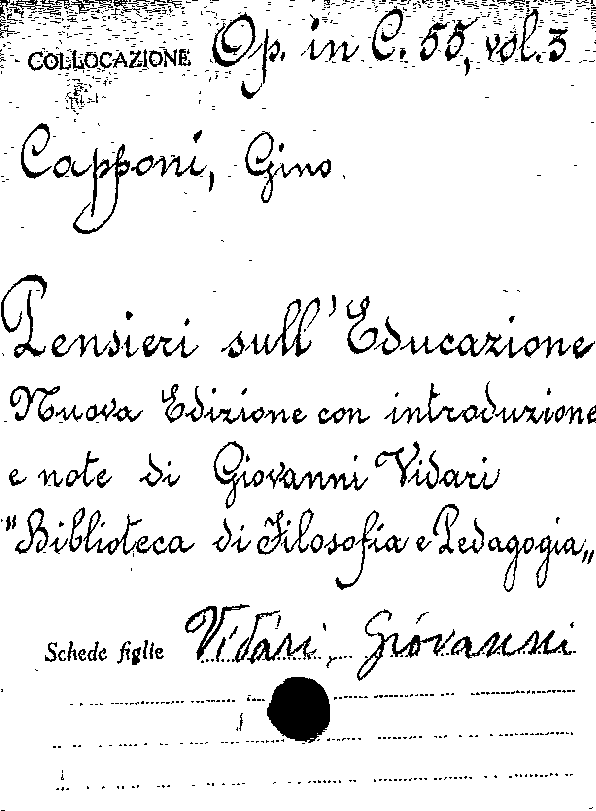 COLLOCAZIONE Op. in C. 55, vol. 3
Capponi, Gino
Pensieri sull'Educazione
Nuova Edizione con introduzione
e note di Giovanni Vidari
"Biblioteca di Filosofia e Pedagogia„
Schede figlie Vidari, Giovanni